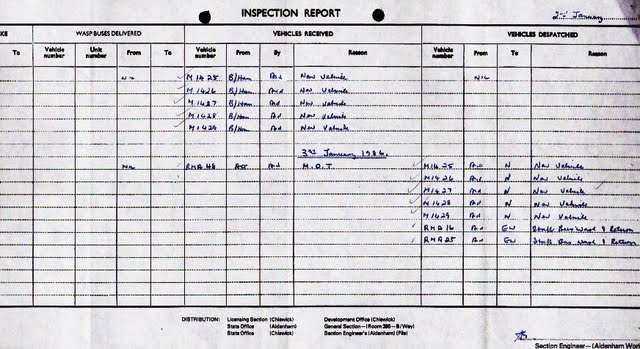 INSPECTION REPORT
2nd January
KE WASP BUSES DELIVERED VEHICLES RECEIVED VEHICLES DESPATCHED
To Vehicle number Unit number From To Vehicle number From By Reason Vehicle number From To Reason
NIL M1425 B/Ham Ad New Vehicle NIL
M1426 B/Ham Ad New Vehicle
M1427 B/Ham Ad New Vehicle
M1428 B/Ham Ad New Vehicle
M1429 B/Ham Ad New Vehicle
3rd January 1986.
NIL RMA 48 Ad M.O.T. M1425 Ad N New Vehicle
M1427 Ad N New Vehicle
M1428 Ad N New Vehicle
M1429 Ad N New Vehicle
RMA 16 Ad EW Staff Bus Used & Return
RMA 25 Ad EW Staff Bus Used & Return
DISTRIBUTION: Licensing Section (Chiswick) Development Office (Chiswick)
Stats Office (Aldenham) General Section—(Room 295 - B/Way)
Stats Office (Chiswick) Section Engineer's (Aldenham) (File)
Section Engineer—(Aldenham Wor